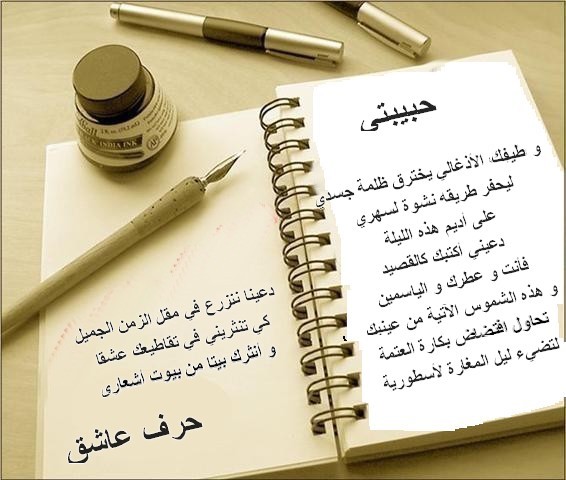 حبيبتي
و طيفك الاذغالي يخترق ظلمة جسدي
ليحفر طريقه نشوة لسهري
على أديم هذه الليلة
دعيني أكتبك كالقصيد
فأنت و عطرك و الياسمين
و هذه الشموس الآتية من عينيك
تحاول افتضاض بكارة العتمة
لتضيء ليل المغارة لأسطورية
دعينا نتزرع في مقل الزمن الجميل
كي تنثريني في تقاطيعك عشقا
و أنثرك بيتا من بيوت أشعارى
حرف عاشق
INDIA INK